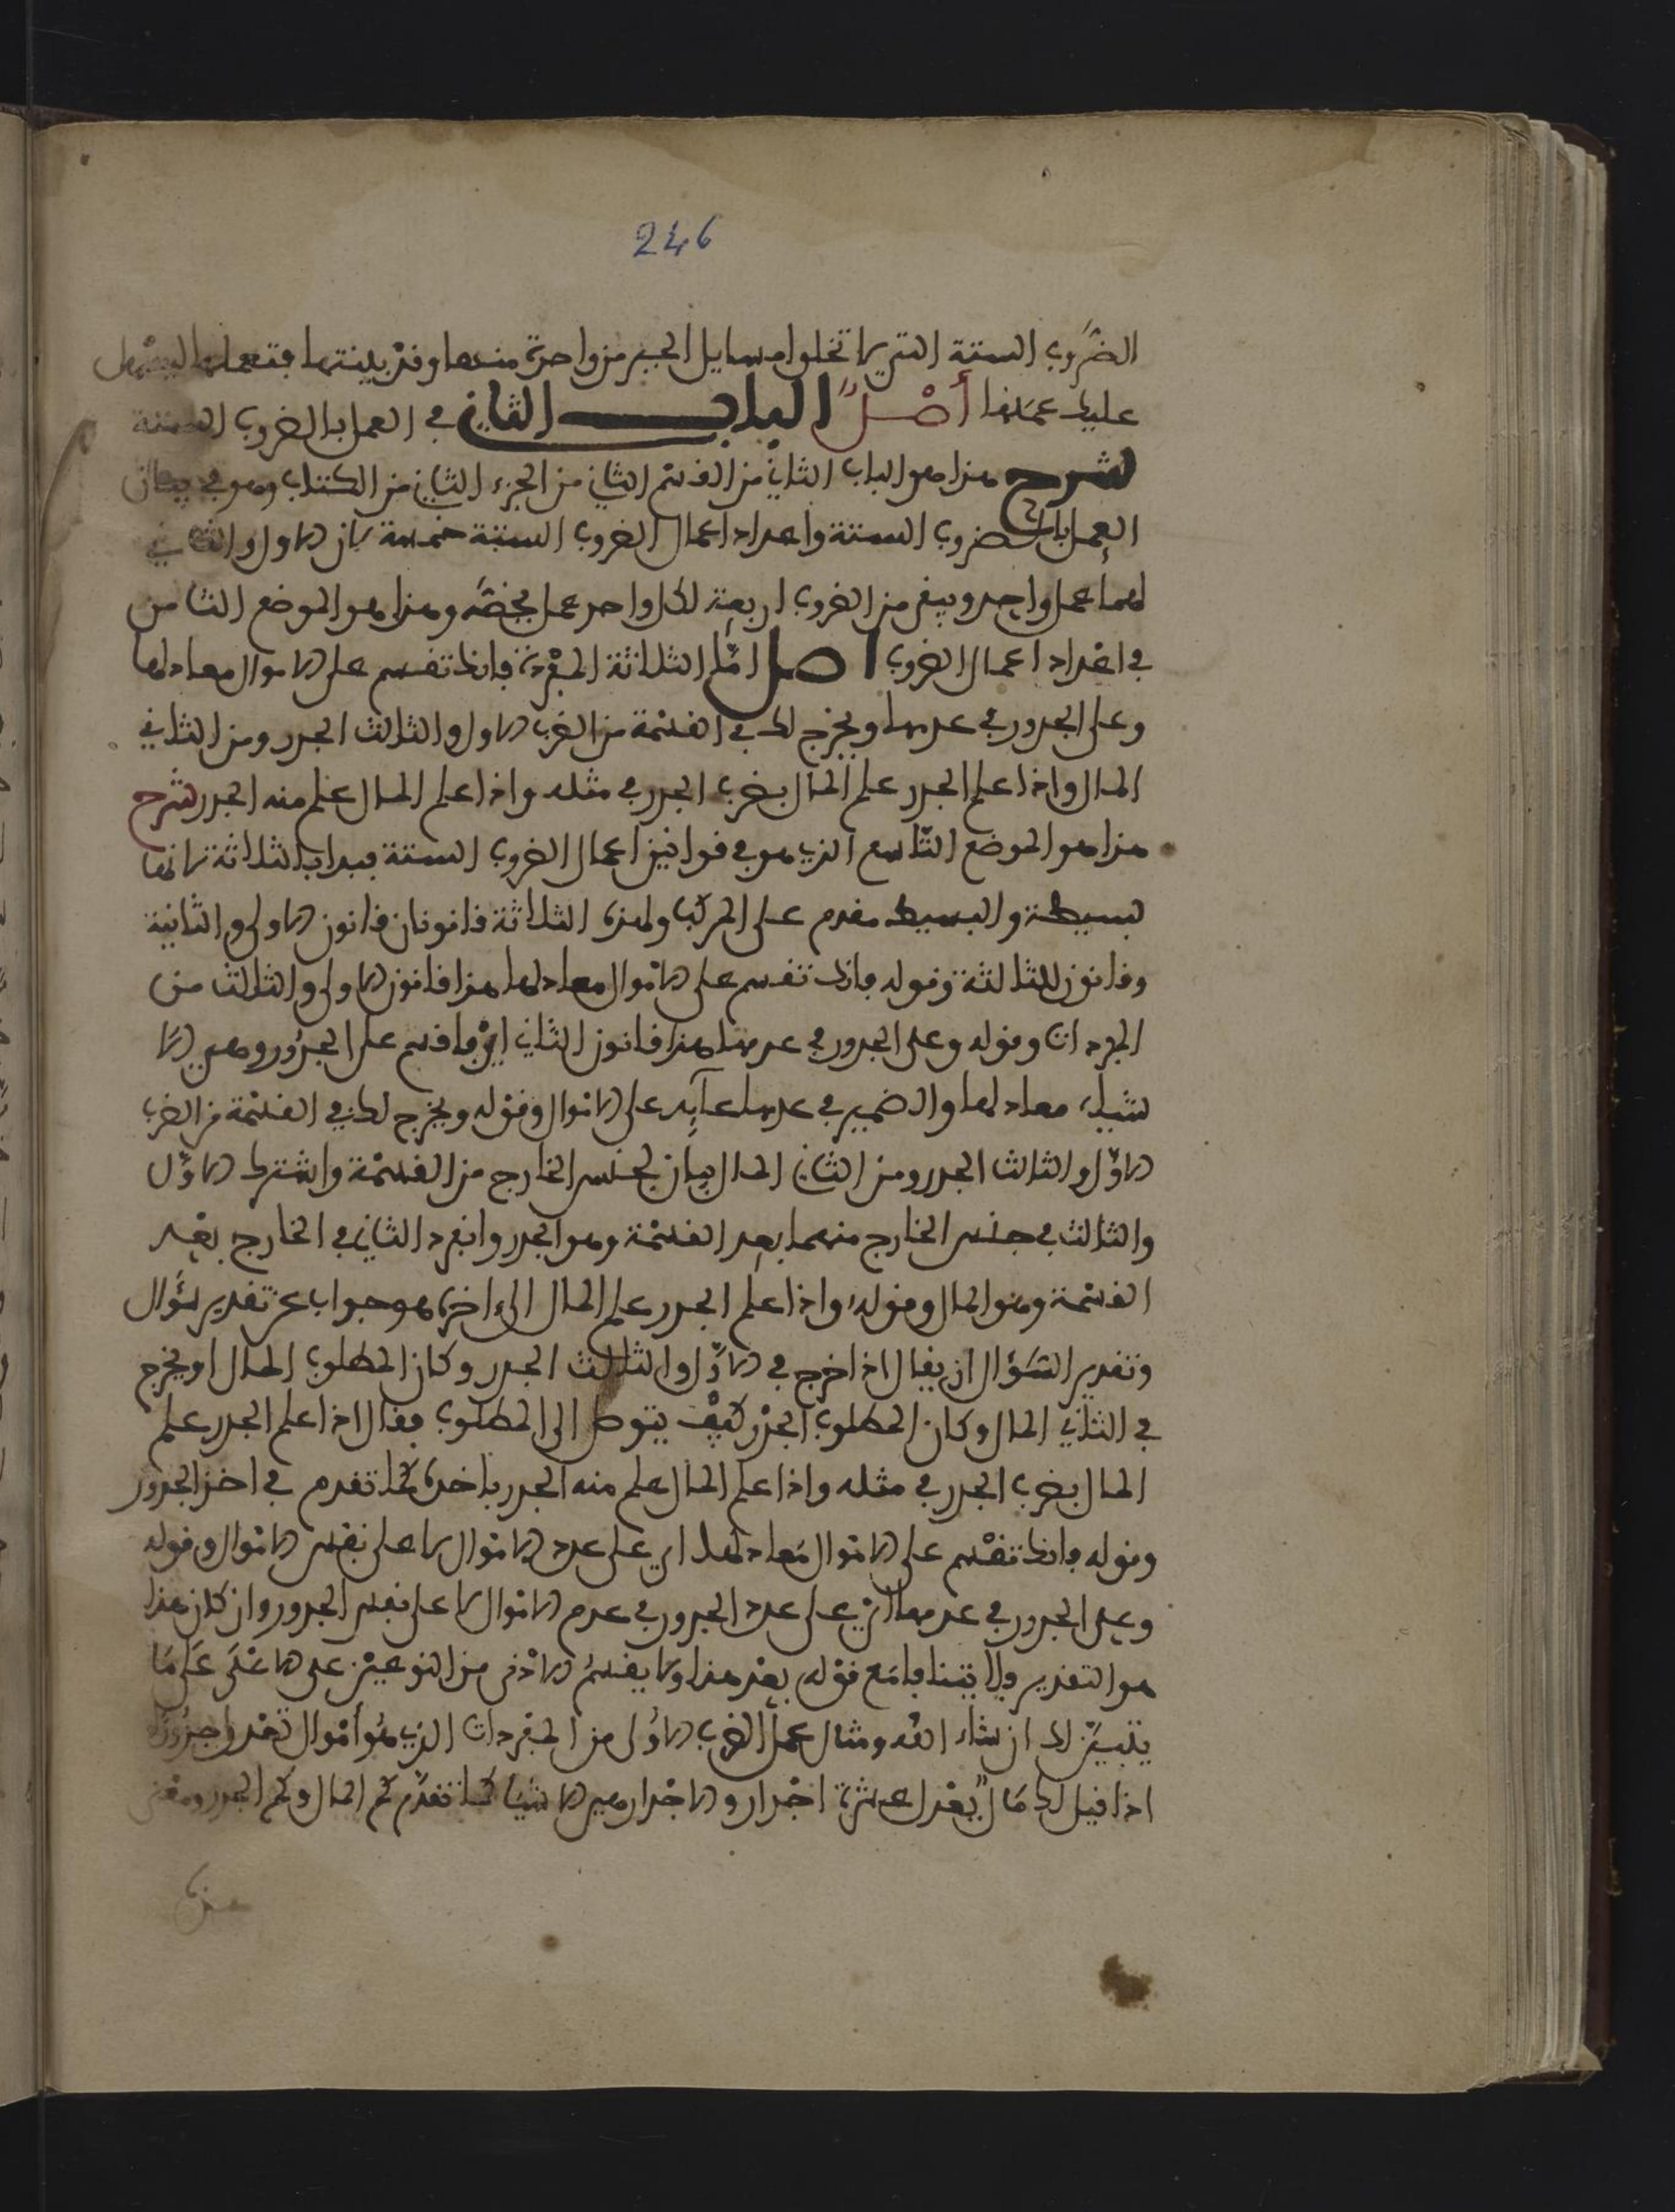 246
الضروب الستة التي لا تخلوا مسايل الجبر من واحدة منها وقد بينتها فتعملها ليسهل
عليك عملها أصل الباب الثاني في العمل بالضروب الستة
شرح هذا هو الباب الثاني من القسم الثاني من الجزء الثاني من الكتاب وهو في بيان
العمل بالضروب الستة واعداد اعمال الضروب الستة خمسة لان الاول والثاني
لهما عمل واحد وبقي من الضروب اربعة لكل واحد عمل يخصه وهذا هو الموضع الثامن
في اعداد اعمال الضروب اصل امّا الثلاثة المفردة فانك تقسم على الاموال معادلها
وعلى الجذور في عدمها ويخرج لك في القسمة من الضرب الاول والثالث الجذر ومن الثاني
المال واذا علم الجذر علم المال بضرب الجذر في مثله واذا علم المال علم منه الجذر شرح
هذا هو الموضع التاسع الذي هو في قوانين اعمال الضروب الستة فبدا بالثلاثة لانها
بسيطة والبسيط مقدم على المركب ولهذه الثلاثة قانونان قانون الاولى والثانية
وقانون للثالثة وقوله فانك تقسم على الاموال معادلها هذا قانون الاولى والثالث من
المفردات وقوله وعلى الجذور في عدمها هذا قانون الثاني اي فاقسم على الجذور وهي الا
شياء معادلها والضمير في عدمها عايد على الاموال وقوله ويخرج لك في القسمة من الضرب
الاوّل والثالث الجذر ومن الثاني المال بيان لجنس الخارج من القسمة واشترك الاوّل
والثالث في جنس الخارج منهما بعد القسمة وهو الجذر وانفرد الثاني في الخارج بعد
القسمة وهو المال وقوله واذا علم الجذر علم المال الى اخره هو جواب عن تقدير سؤال
وتقدير السؤال ان يقال اذا خرج في الاوّل والثالث الجذر وكان المطلوب المال او يخرج
في الثاني المال وكان المطلوب الجذر كيف يتوصل الى المطلوب فقال اذا علم الجذر علم
المال بضرب الجذر في مثله واذا علم المال علم منه الجذر باخذه كما تقدم في اخذ الجذور
وقوله فانك تقسم على الاموال معادلها اي على عدد الاموال لا على نفس الاموال وقوله
وعلى الجذور في عدمها اي على عدد الجذور في عدم الاموال لا على نفس الجذور وان كان هذا
هو التقدير ولا يتنافا مع قوله بعد هذا ولا يقسم الادنى من النوعين على الاعلى على ما
يتبيّن لك ان شاء الله ومثال عمل الضرب الاولى من المفردات الذي هو أموال تعدل جذورًا
اذا قيل لك مال يعدل عشرة اجذار والاجذار هي الاشيا كما تقدّم كم المال وكم الجذر ومعنى